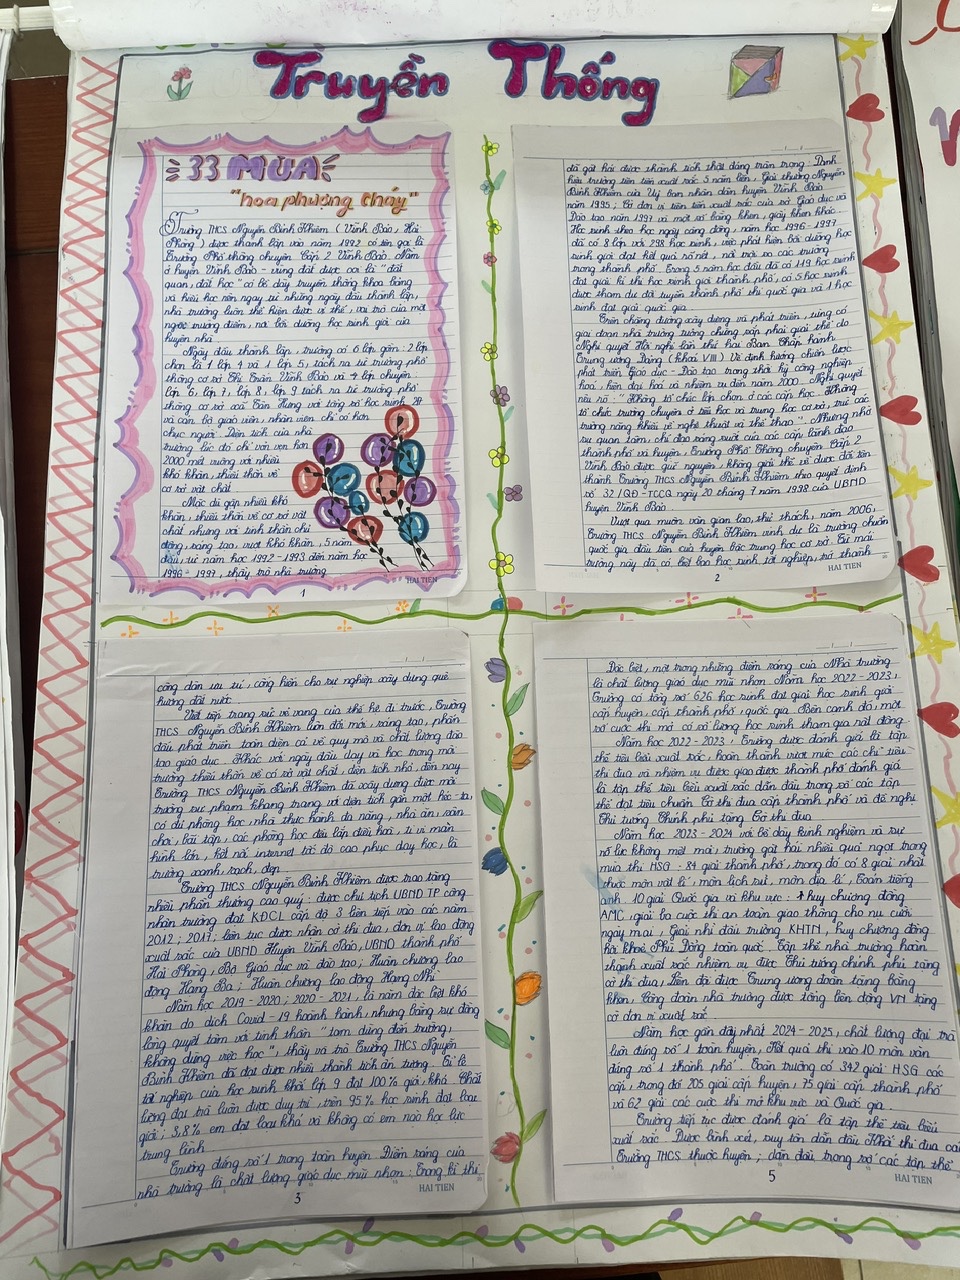 Truyền Thống
33 MÙA
"hoa phượng cháy"
Trường THCS Nguyễn Bỉnh Khiêm (Vĩnh Bảo, Hải
Phòng) được thành lập vào năm 1992 có tên gọi là
Trường Phổ thông chuyên Cấp 2 Vĩnh Bảo. Nằm
ở huyện Vĩnh Bảo - vùng đất được coi là "đất
quan, đất học" có bề dày truyền thống khoa bảng
và hiếu học nên ngay từ những ngày đầu thành lập,
nhà trường luôn thể hiện được vị thế, vai trò của một
ngôi trường điểm, nơi bồi dưỡng học sinh giỏi của
huyện nhà.
Ngày đầu thành lập, trường có 6 lớp gồm: 2 lớp
chọn là 1 lớp 4 và 1 lớp 5; tách ra từ trường phổ
thông cơ sở Thị Trấn Vĩnh Bảo và 4 lớp chuyên:
lớp 6, lớp 7, lớp 8, lớp 9 tách ra từ trường phổ
thông cơ sở xã Tân Hưng với tổng số học sinh 28
và cán bộ giáo viên, nhân viên chỉ có hơn
chục người. Diện tích của nhà
trường lúc đó chỉ vỏn vẹn hơn
2000 mét vuông với nhiều
khó khăn, thiếu thốn về
cơ sở vật chất.
Mặc dù gặp nhiều khó
khăn, thiếu thốn về cơ sở vật
chất nhưng với tinh thần chủ
động, sáng tạo, vượt khó khăn, 5 năm
đầu, từ năm học 1992 - 1993 đến năm học
1996 - 1997, thầy trò nhà trường
HAI TIEN
1
đã gặt hái được thành tích thật đáng trân trọng: Danh
hiệu trường tiên tiến xuất sắc 5 năm liền, Giải thưởng Nguyễn
Bỉnh Khiêm của Uỷ ban nhân dân huyện Vĩnh Bảo
năm 1995; Cờ đơn vị tiên tiến xuất sắc của sở Giáo dục và
Đào tạo năm 1997 và một số bằng khen, giấy khen khác.
Học sinh theo học ngày càng đông, năm học 1996 - 1997
đã có 8 lớp với 298 học sinh, việc phát hiện bồi dưỡng học
sinh giỏi đạt kết quả rõ nét, nổi trội so các trường
trong thành phố. Trong 5 năm học đầu đã có 119 học sinh
đạt giải kì thi học sinh giỏi thành phố, có 5 học sinh
được tham dự đội tuyển thành phố thi quốc gia và 1 học
sinh đạt giải quốc gia.
Trên chặng đường xây dựng và phát triển, từng có
giai đoạn nhà trường tưởng chừng sắp phải giải thể do
Nghị quyết Hội nghị lần thứ hai Ban Chấp hành
Trung ương Đảng (khoá VIII) về định hướng chiến lược
phát triển Giáo dục - Đào tạo trong thời kỳ công nghiệp
hoá, hiện đại hoá và nhiệm vụ đến năm 2000. Nghị quyết
nêu rõ: "Không tổ chức lớp chọn ở các cấp học. Không
tổ chức trường chuyên ở tiểu học và trung học cơ sở, trừ các
trường năng khiếu về nghệ thuật và thể thao". Nhưng nhờ
sự quan tâm, chỉ đạo sáng suốt của các cấp lãnh đạo
thành phố và huyện, Trường Phổ Thông chuyên Cấp 2
Vĩnh Bảo được giữ nguyên, không giải thể và được đổi tên
thành Trường THCS Nguyễn Bỉnh Khiêm theo quyết định
số 32/QĐ-TCCQ ngày 20 tháng 7 năm 1998 của UBND
huyện Vĩnh Bảo.
Vượt qua muôn vàn gian lao, thử thách, năm 2006,
Trường THCS Nguyễn Bỉnh Khiêm vinh dự là trường chuẩn
quốc gia đầu tiên của huyện bậc trung học cơ sở. Từ mái
trường này đã có biết bao học sinh tốt nghiệp, trở thành
2
HAI TIEN
công dân ưu tú, cống hiến cho sự nghiệp xây dựng quê
hương đất nước.
Viết tiếp trang sử vẻ vang của thế hệ đi trước, Trường
THCS Nguyễn Bỉnh Khiêm luôn đổi mới, sáng tạo, phấn
đấu phát triển toàn diện cả về quy mô và chất lượng đào
tạo giáo dục. Khác với ngày đầu dạy và học trong mái
trường thiếu thốn về cơ sở vật chất, diện tích nhỏ, đến nay
Trường THCS Nguyễn Bỉnh Khiêm đã xây dựng được mái
trường sư phạm khang trang với diện tích gần một héc-ta,
có đủ phòng học, nhà thực hành đa năng, nhà ăn, sân
chơi, bãi tập, các phòng học đều lắp điều hoà, ti vi màn
hình lớn, kết nối internet tốc độ cao phục dạy học, là
trường xanh, sạch, đẹp.
Trường THCS Nguyễn Bỉnh Khiêm được trao tặng
nhiều phần thưởng cao quý: được chủ tịch UBND TP công
nhận trường đạt KĐCL cấp độ 3 liên tiếp vào các năm
2012; 2017; liên tục được nhận cờ thi đua, đơn vị lao động
xuất sắc của UBND Huyện Vĩnh Bảo, UBND thành phố
Hải Phòng, Bộ Giáo dục và đào tạo; Huân chương lao
động Hạng Ba; Huân chương lao động Hạng Nhì.
Năm học 2019 - 2020; 2020 - 2021, là năm đặc biệt khó
khăn do dịch Covid - 19 hoành hành, nhưng bằng sự đồng
lòng quyết tâm với tinh thần "tạm dừng đến trường,
không dừng việc học", thầy và trò Trường THCS Nguyễn
Bỉnh Khiêm đã đạt được nhiều thành tích ấn tượng. Tỉ lệ
tốt nghiệp của học sinh khối lớp 9 đạt 100% giỏi, khá. Chất
lượng đại trà luôn được duy trì, trên 95% học sinh đạt loại
giỏi; 3,8% em đạt loại khá và không có em nào học lực
trung bình.
Trường đứng số 1 trong toàn huyện. Điểm sáng của
nhà trường là chất lượng giáo dục mũi nhọn: Trong kì thi
3
HAI TIEN
Đặc biệt, một trong những điểm sáng của Nhà trường
là chất lượng giáo dục mũi nhọn. Năm học 2022 - 2023,
Trường có tổng số 626 học sinh đạt giải học sinh giỏi
cấp huyện, cấp thành phố, quốc gia. Bên cạnh đó, một
số cuộc thi mở có số lượng học sinh tham gia rất đông.
Năm học 2022 - 2023, Trường được đánh giá là tập
thể tiêu biểu xuất sắc, hoàn thành vượt mức các chỉ tiêu
thi đua và nhiệm vụ được giao được thành phố đánh giá
là tập thể tiêu biểu xuất sắc dẫn đầu trong số các tập
thể đạt tiêu chuẩn Cờ thi đua cấp thành phố và đề nghị
Thủ tướng Chính phủ tặng Cờ thi đua.
Năm học 2023 - 2024 với bề dày kinh nghiệm và sự
nỗ lực không mệt mỏi, trường gặt hái nhiều quả ngọt trong
mùa thi HSG: 84 giải thành phố, trong đó có 8 giải nhất
thuộc môn vật lí, môn lịch sử, môn địa lí, Toán tiếng
anh. 10 giải Quốc gia và khu vực: 1 huy chương đồng
AMC, giải ba cuộc thi an toàn giao thông cho nụ cười
ngày mai, Giải nhì đấu trường KHTN, huy chương đồng
hội khoẻ Phù Đổng toàn quốc. Tập thể nhà trường hoàn
thành xuất sắc nhiệm vụ được Thủ tướng chính phủ tặng
cờ thi đua, Liên đội được Trung ương đoàn tặng bằng
khen, Công đoàn nhà trường được tổng liên động VN tặng
cờ đơn vị xuất sắc.
Năm học gần đây nhất 2024 - 2025, chất lượng đại trà
luôn đứng số 1 toàn huyện, Kết quả thi vào 10 môn văn
đứng số 1 thành phố. Toàn trường có 342 giải HSG các
cấp, trong đó 205 giải cấp huyện, 75 giải cấp thành phố
và 62 giải các cuộc thi mở khu vực và Quốc gia.
Trường tiếp tục được đánh giá là tập thể tiêu biểu
xuất sắc. Được bình xét, suy tôn dẫn đầu Khối thi đua các
Trường THCS thuộc huyện; dẫn đầu trong số các tập thể
5
HAI TIEN